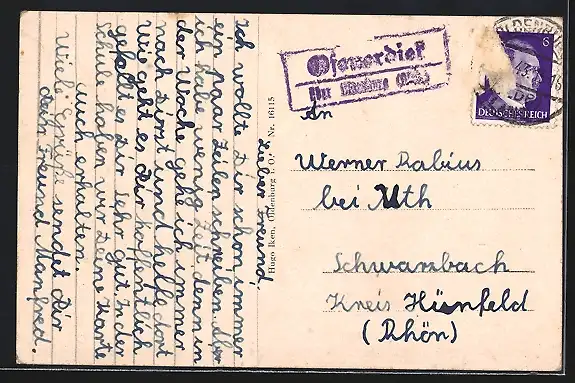 Lieber Freund.
Ich wollte Dir schon immer
ein Paar Zeilen schreiben. Aber
ich habe wenig Zeit denn in
der Woche gehe ich immer
nach Dirt und helle dort
Wie geht es Dir hoffentlich
gefällt es Dir sehr gut. In der
Schule haben wir Deine Karte
auch erhalten.
Viele Grüße sendet Dir
dein Freund Manfred.
Hugo Iken, Oldenburg i. O. Nr. 16115
über
6
DEUTSCHES REICH
An
Werner Rabius
bei Uth
Schwarzbach
Kreis Hünfeld
(Rhön)